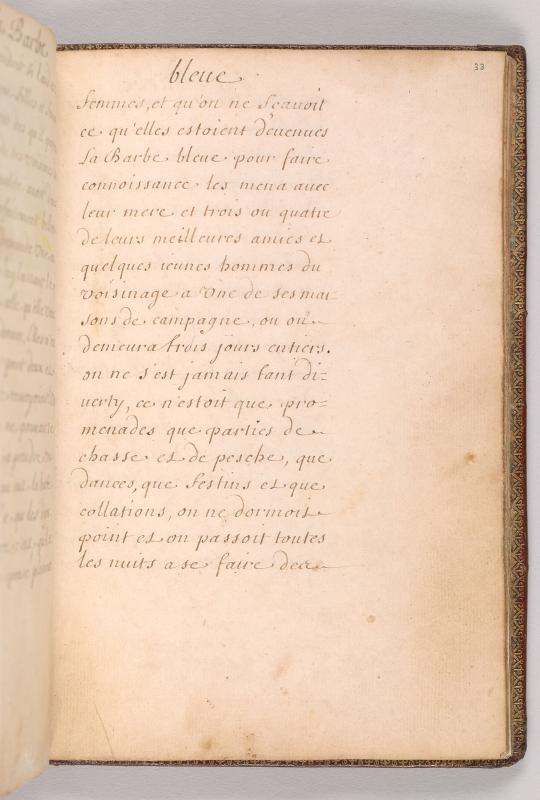 33
bleue
femmes, et qu'on ne scavoit
ce qu'elles estoient devenues
La Barbe bleue pour faire
connoissance les mena avec
leur mere et trois ou quatre
de leurs meilleures amies et
quelques ieunes hommes du
voisinage a une de ses mai
sons de campagne, ou on
demeura trois jours entiers.
on ne s'est jamais tant di=
verty, ce n'estoit que pro=
menades que parties de
chasse et de pesche, que
dances, que festins et que
collations, on ne dormoit
point et on passoit toutes
les nuits a se faire des